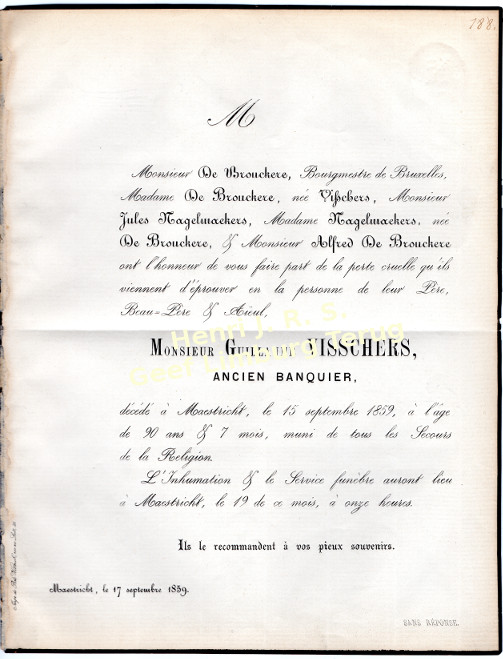 188.
M
Monsieur De Brouckere, Bourgmestre de Bruxelles,
Madame De Brouckere, née Visschers, Monsieur
Jules Nagelmackers, Madame Nagelmackers, née
De Brouckere, & Monsieur Alfred De Brouckere
ont l'honneur de vous faire part de la perte cruelle qu'ils
viennent d'éprouver en la personne de leur Père,
Beau-Père & Aïeul,
Henri J. R. S.
Geef Limburg Terug
MONSIEUR GUILLAUME VISSCHERS,
ANCIEN BANQUIER,
décédé à Maestricht, le 15 septembre 1859, à l'âge
de 90 ans & 7 mois, muni de tous les Secours
de la Religion.
L'Inhumation & le Service funèbre auront lieu
à Maestricht, le 19 de ce mois, à onze heures.
Ils le recommandent à vos pieux souvenirs.
Maestricht, le 17 septembre 1859.
SANS RÉPONSE.